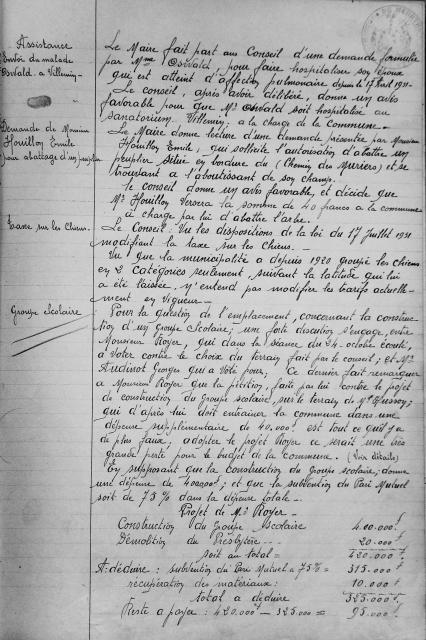 Assistance
Envoi du malade
Oswald. a Villemin.
Le Maire fait part au Conseil d'une demande formulée
par Mme Oswald, pour faire hospitaliser son Epoux
qui est atteint d'affection pulmonaire depuis le 17 Avril 1931.
Le conseil, après avoir délibéré, donne un avis
favorable pour que Mr. Oswald soit hospitalisé au
sanatorium. Villemin, à la charge de la Commune.
Demande de Monsieur
Houillon Emile
pour abattage d'un peuplier
Le Maire donne lecture d'une demande présentée par Monsieur
Houilloy Emile, qui sollicite l'autorisation d'abattre un
peuplier situé en bordure du (Chemin des Muriers) et se
trouvant a l'aboutissant de son champ.
le conseil donne un avis favorable, et décide que
Mr Houilloy versera la somme de 40 francs a la commune
à charge par lui d'abattre l'arbre.
Taxe sur les Chiens.
Le Conseil: Vu les dispositions de la loi du 17 Juillet 1931
modifiant la taxe sur les chiens. —
Vu! que la municipalité a depuis 1920 groupé les chiens
en 2 catégories seulement, suivant la latitude qui lui
a été laissée. n'entend pas modifier les tarifs actuelle-
ment en vigueur —
Groupe Scolaire
Pour la question de l'emplacement, concernant la construc-
tion d'un groupe Scolaire; une forte discution s'engage, entre
Monsieur Royer, qui dans la séance du 24. octobre écoulé,
a voter contre le choix du terrain fait par le conseil; et Mr
Audinot Georges qui a voté pour; Ce dernier fait remarquer
a Monsieur Royer que la pétition, faite par lui contre le projet
de construction du Groupe scolaire, sur le terrain de Mr
qui d'après lui doit entrainer la commune dans une
dépense supplimentaire de 40.000f est tout ce qu'il y a
de plus faux; adopter le projet Royer ce serait une très
grande perte pour le budget de la commune. (Voir détails)
En supposant que la construction du Groupe scolaire, donne
une dépense de 400000f; et que la subvention du Pari Mutuel
soit de 75% dans la dépense totale. —
Projet de Mr. Royer
Construction du Groupe Scolaire 400.000f.
Démolition du Presbytère . . 20.000f
soit au total = 420.000f
A déduire: subvention du Pari Mutuel a 75% = 315.000f
récupération des matériaux: 10.000f
total a déduire 325.000f
Reste a payer: 420.000f — 325.000 = 95.000f